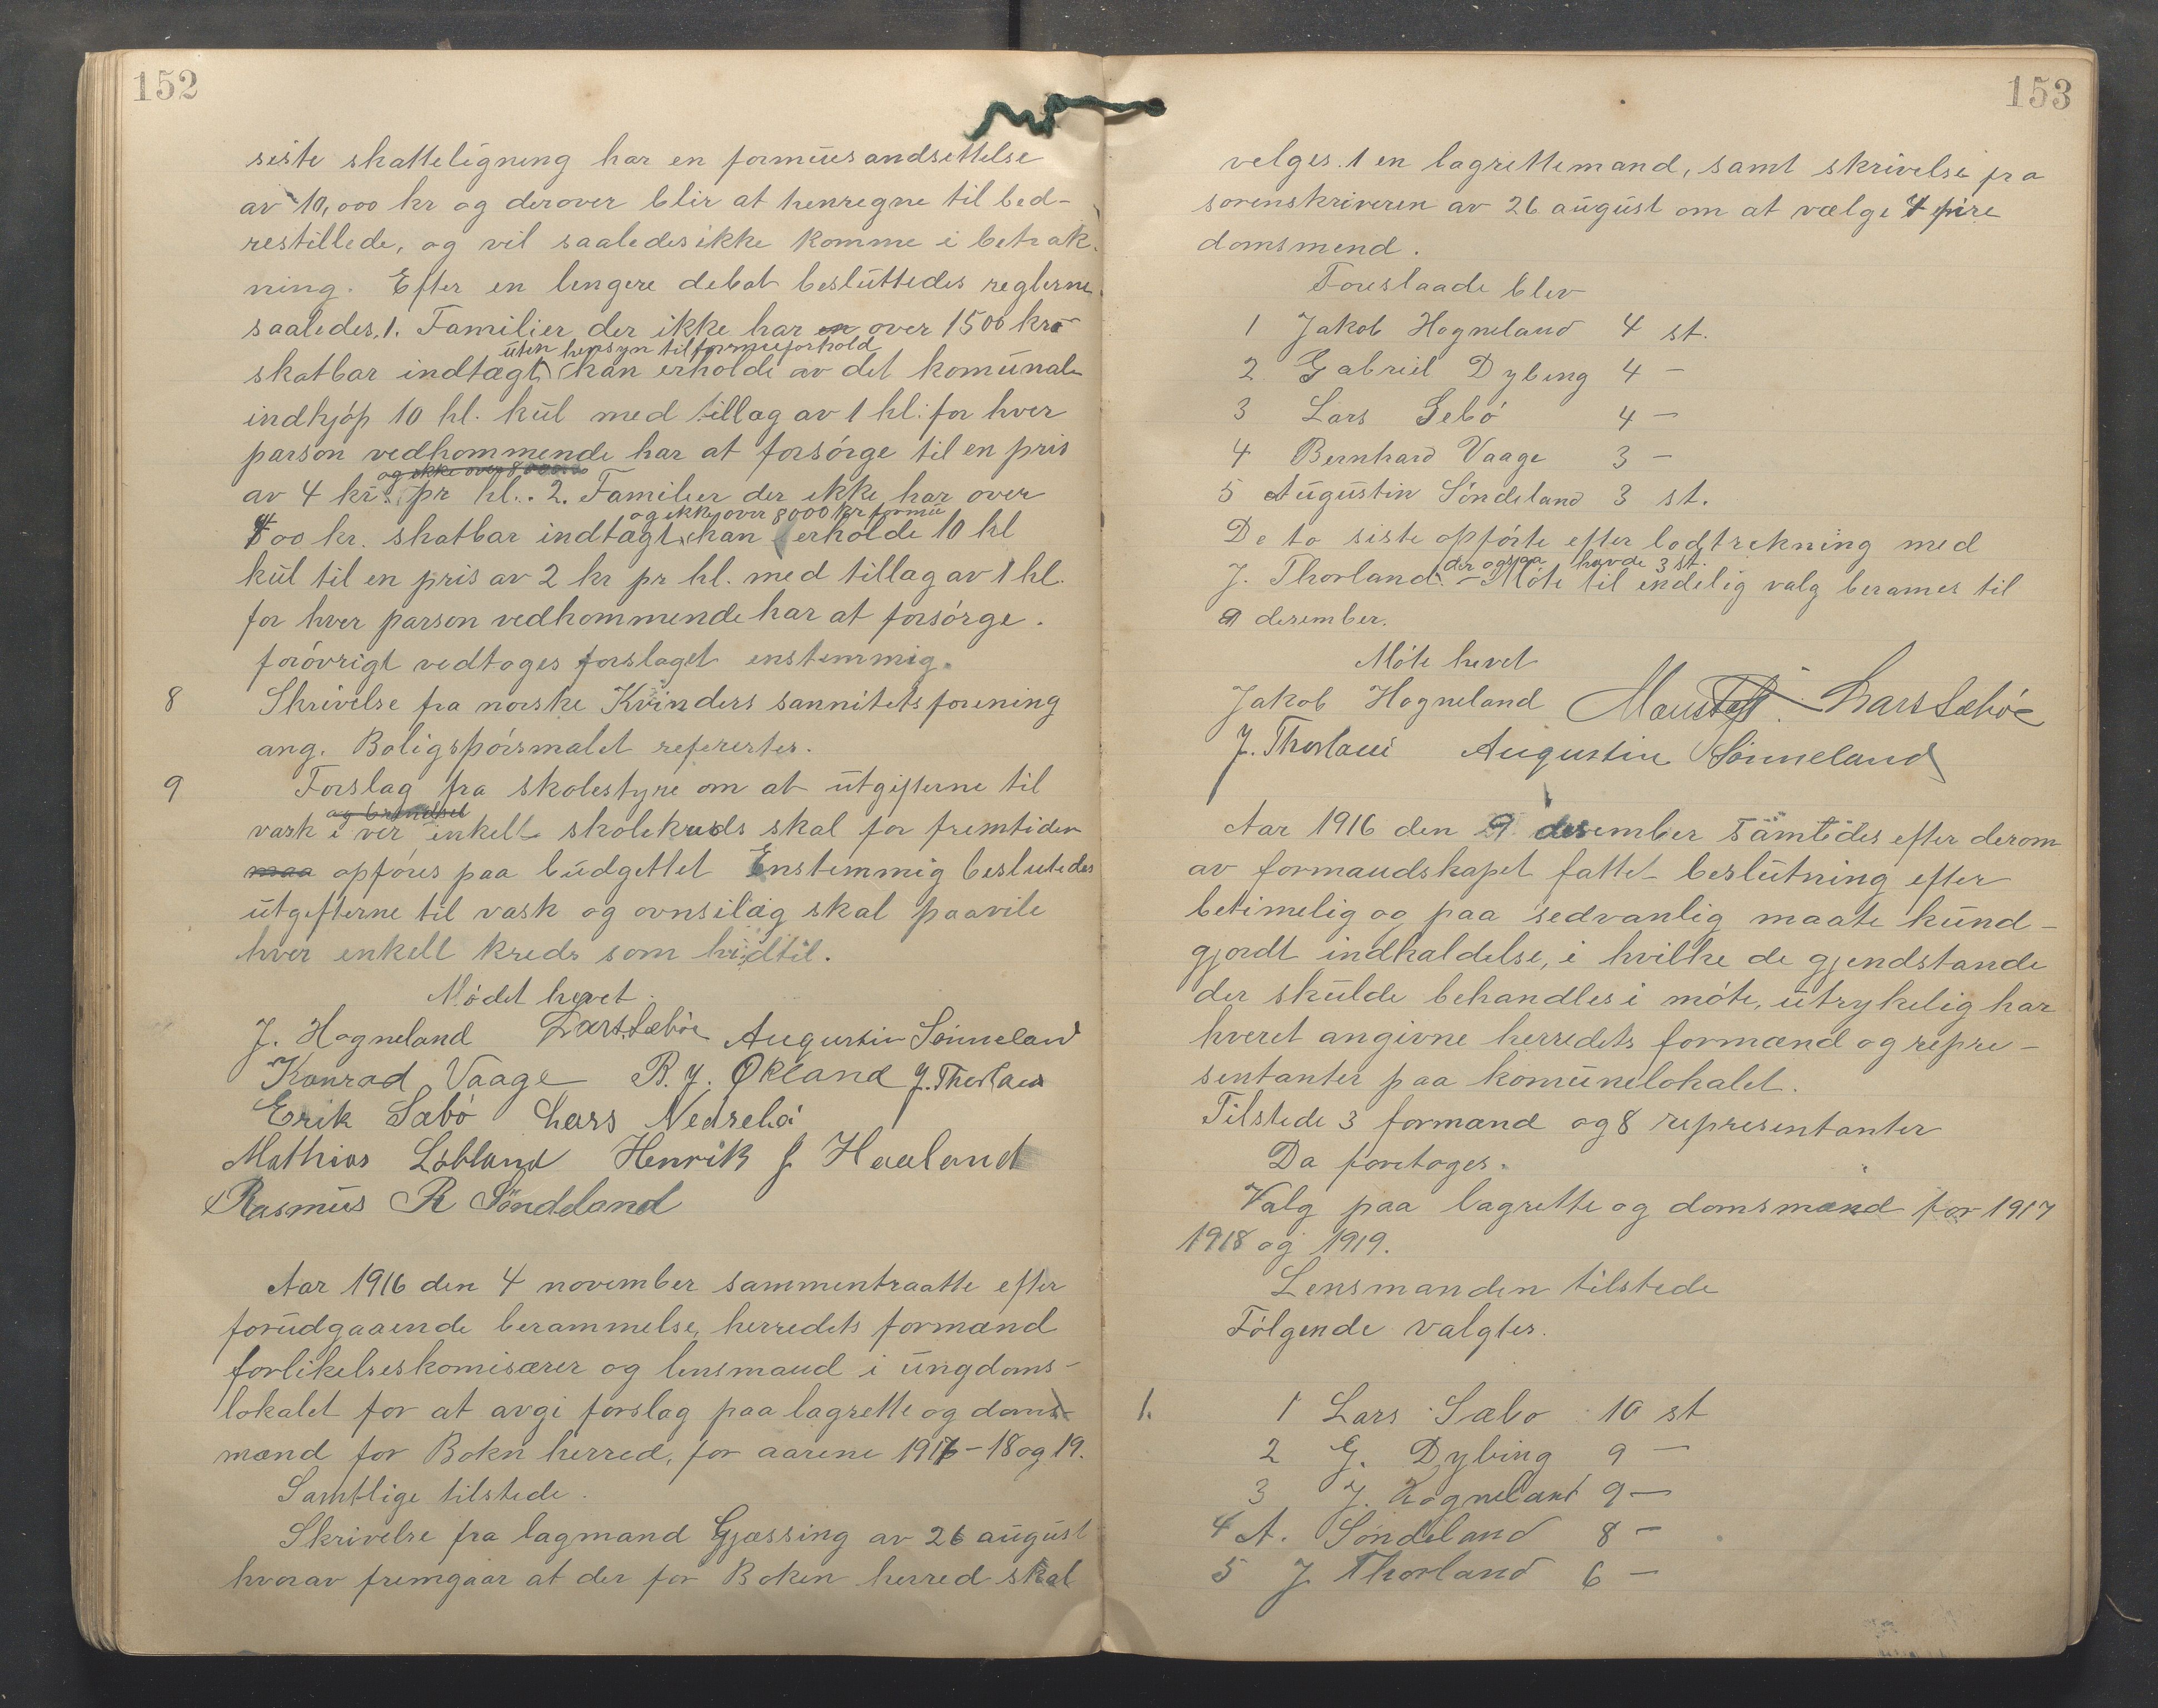 152
siste skatteligning har en formuesandsettelse
av 10,000 kr og derover blir at henregne til bed-
restillede, og vil saaledes ikke komme i betrak-
ning. Efter en lengere debat besluttedes reglerne
saaledes, 1. Familier der ikke har en over 1500 kr
uten hensyn til formueforhold
skatbar indtægt kan erholde av det komunale
indkjöp 10 hl. kul med tillæg av 1 hl. for hver
parson vedkommende har at forsörge til en pris
og ikke over 8000
av 4 kr. pr hl.. 2. Familier der ikke har over
og ikke over 8000 kr formu
700 kr. skatbar indtægt kan erholde 10 hl
kul til en pris av 2 kr pr hl. med tillæg av 1 hl.
for hver parson vedkommende har at forsörge.
forövrigt vedtoges forslaget enstemmig.
8 Skrivelse fra norske Kvinders sannitetsforening
ang. Boligspörsmalet refererter.
9 Forslag fra skolestyre om at utgifterne til
og brendsel
vask i ver enkelt skolekreds skal for fremtiden
maa opföres paa budgettet Enstemmig beslutedes
utgefterne til vask og ovnsilæg skal paavile
hver enkelt kreds som hidtil.
Mödet hevet.
J. Hogneland Lars Sæböe Augustin Sönneland
Konrad Vaage B. J. Økland J. Thorland
Erik Sæbö Lars Nedrebö
Mathias Löbland Henrik J. Haaland
Rasmus R Söndeland
Aar 1916 den 4 november sammentraatte efter
forudgaaende berammelse, herredets formænd
forlikelseskomisærer og lensmand i ungdoms-
lokalet for at avgi forslag paa lagrette og doms-
mænd for Bokn herred, for aarene 1917-18 og 19.
Samtlige tilstede.
Skrivelse fra lagmand Gjæssing av 26 august
hvorav fremgaar at der for Boken herred skal
153
velges 1 en lagrettemand, samt skrivelse fra
sorenskriveren av 26 august om at vælge 4 fire
domsmend.
Foreslaade blev
1 Jakob Hogneland 4 st.
2 Gabriel Dybing 4 -
3 Lars Sebö 4 -
4 Bernhard Vaage 3 -
5 Augustin Söndeland 3 st.
De to siste opförte efter lodtrekning med
der ogsaa havde 3 st.
J. Thorland. - Möte til endelig valg berames til
9 desember.
Möte hevet
Jakob Hogneland Lars Sæböe
J. Thorland Augustin Sönneland
Aar 1916 den 9 desember samtedes efter derom
av formandskapet fattet beslutning efter
betimelig og paa sedvanlig maate kund-
gjordt indkaldelse, i hvilke de gjendstande
der skulde behandles i möte, utrykelig har
hveret angivne herredets formænd og repre-
sentanter paa komunelokalet.
Tilstede 3 formænd og 8 representanter
Da foretoges.
Valg paa lagrette og domsmænd for 1917
1918 og 1919.
Lensmanden tilstede
Fölgende valgtes.
1. 1 Lars Sæbo 10 st
2 G. Dybing 9 -
3 J. Hogneland 9 -
4 A. Söndeland 8 -
5 J Thorland 6 -